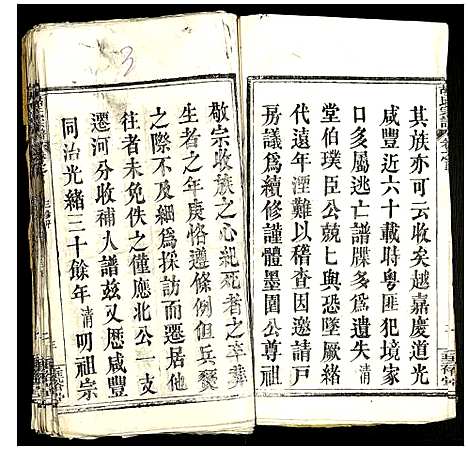 其族亦可云收矣越嘉慶道光
咸豐近六十載時粵匪犯境家
口多屬逃亡譜牒多爲遺失清
堂伯璞臣公兢兢與恐墜厥緒
代遠年湮難以稽查因邀請戶
房議爲續修謹體墨園公尊祖
敬宗收族之心紀死者之卒葬
生者之年庚恪遵條例但兵燹
之際不及細爲採訪而遷居他
往者未免佚之僅應北公一支
遷河分收補人譜茲又歷咸豐
同治光緒三十餘年清叨祖宗
3